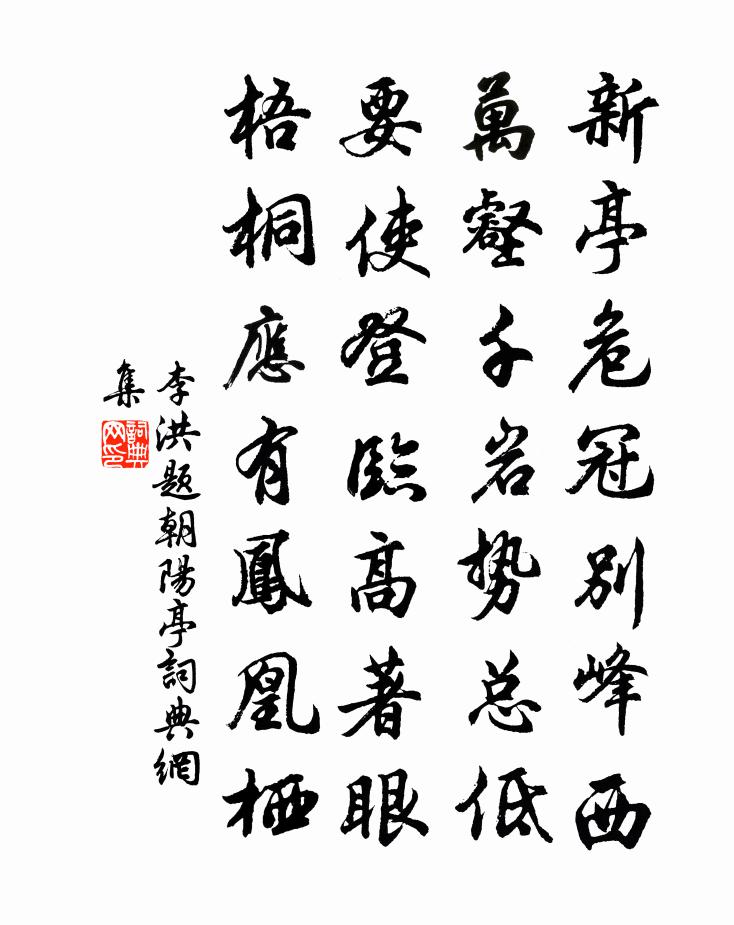 新亭危冠別峰西
萬壑千岩势总低
要使登臨高著眼
梧桐應有鳳凰栖
李洪题朝陽亭詞典網
集
詞典
网印